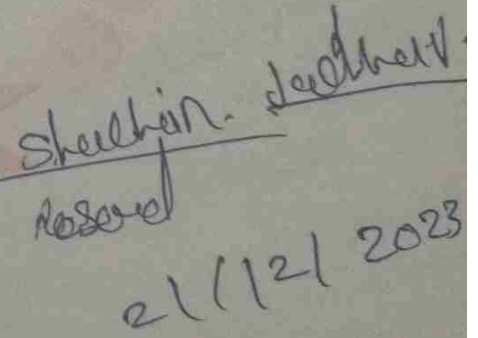 Shachin. Jadhav.
Resered
21/12/2023